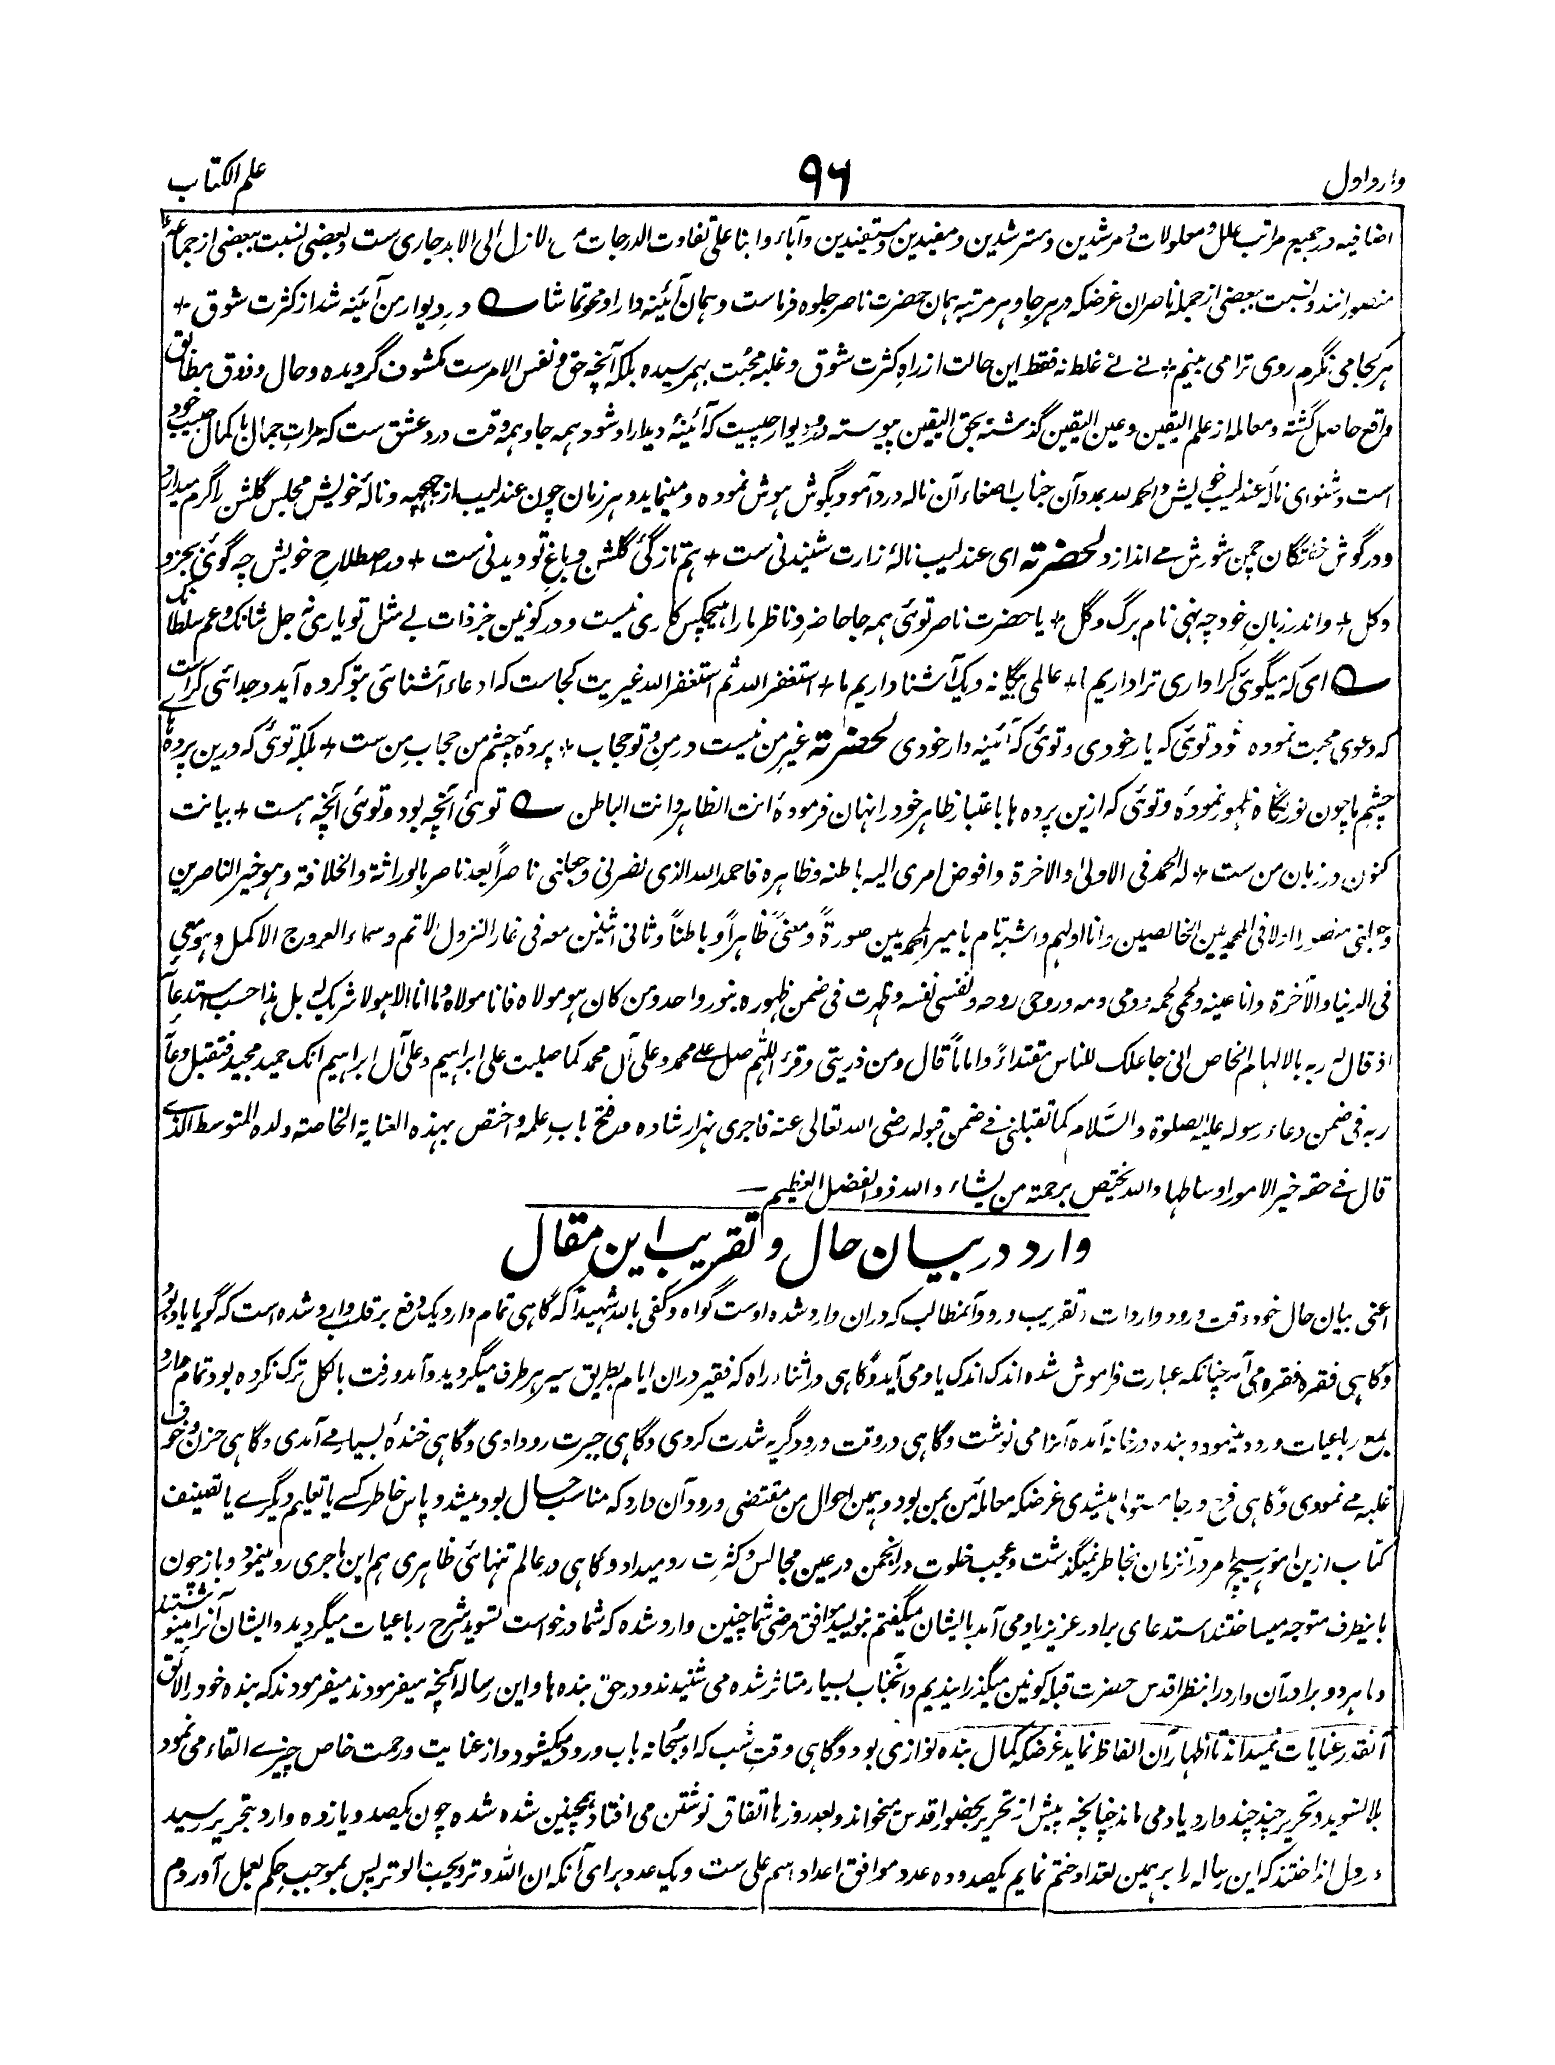 وارد اول
۹۶
علم الکتاب
اضافیه در جمیع مراتب علل و معلولات و مرشدین و مسترشدین و مفیدین و مستفیدین و آباء و ابنا علی تفاوت الدرجات من الازل الی الابد جاری ست و بعضی نسبت ببعضی از جماعهٔ
منصورانند و نسبت ببعضی از جمله ناصران غرضکه در هر جا و هر مرتبه همان حضرت ناصر جلوه فرماست و همان آئینه دار او محو تماشا در و دیوار من آئینه شد از کثرت شوق +
هر کجا می نگرم روی ترا می بینم + نے نے غلط نه فقط این حالت از راه کثرت شوق و غلبه محبت بهمرسیده بلکه آنچه حق و نفس الامرست مکشوف گردیده و حال و ذوق مطابق
واقع حاصل گشته و معامله از علم الیقین و عین الیقین گذشته بحق الیقین پیوسته در و دیوار چیست که آئینهٔ دیدار او شود همه جا و همه وقت درد عشق ست که مرات جمال با کمال حبیب خود
است و شنوای نالهٔ عندلیب خویش و الحمد لله بعد آن جناب اصغاء آن ناله درد آمود بگوش هوش نموده و مینماید و هر زمان چون عندلیب از چهچهه و نالهٔ خویش مجلس گلشن را گرم میدارد
و در گوش خفتگان چمن شورش مے اندازد لحضرته ای عندلیب نالهٔ زارت شنیدنی ست + هم تازگئ گلشن و باغ تو دیدنی ست + در اصطلاح خویش چه گوئی بجزو
و کل + و اندر زبان خود چه نهی نام برگ و گل + یا حضرت ناصر توئی همه جا حاضر و ناظر ما را بهیچکس کاری نیست و در کونین جز ذات بے مثل تو یاری نه جل شانک و عم سلطانک
ای که میگوئی کرا داری ترا داریم ما + عالمی بیگانه و یک آشنا داریم ما + استغفر الله ثم استغفر الله غیریت کجاست که ادعاء آشنائی بتو کرده آید و جدائی کراست
که دعوی محبت نموده شود توئی که یار خودی و توئی که آئینه دار خودی لحضرته غیر من نیست در من و تو حجاب + پردهٔ چشم من حجاب من ست + بلکه توئی که درین پرده های
چشم ما چون نور نگاه ظهور نمودهٔ و توئی که ازین پرده ها باعتبار ظاهر خود را نهان فرمودهٔ انت الظاهر و انت الباطن توئی آنچه بود و توئی آنچه هست + بیانت
کنون در زبان من ست + له الحمد فی الاولی و الاخرة و افوض امری الیه باطنه و ظاهره فاحمد الله الذی نصرنی و جعلنی ناصراً بعد ناصر بالوراثة و الخلافة و هو خیر الناصرین
و جعلنی منصورا ازلا فی المحمدیین الخالصین و انا اولهم و اشبه تام بامیر المحمدیین صورةً و معنیً ظاهراً و باطناً و ثانی اثنین معه فی غار النزول الاتم و سماء العروج الاکمل و هو معی
فی الدنیا و الآخرة و انا عینه و لحمی لحمه و دمی دمه و روحی روحه و نفسی نفسه و ظهرت فی ضمن ظهوره بنور واحد و من کان هو مولاه فانا مولاه و ما انا الا هو لا شریک له بل هذا حسب استدعائه
اذ قال له ربه بالالهام الخاص انی جاعلک للناس مقتداءً و اماماً قال و من ذریتی و قرء اللهم صل علی محمد و علی آل محمد کما صلیت علی ابراهیم و علی آل ابراهیم انک حمید مجید فتقبل دعاءه
ربه فی ضمن دعاء رسوله علیه الصلوة و السلام کما تقبلنی فے ضمن قبوله رضی الله تعالی عنه فاجری نهر ارشاده و فتح باب علمه و اختص بهذه العنایة الخاصة ولده المتوسط الذے
قال فے حقه خیر الامور اوساطها و الله یختص برحمته من یشاء و الله ذو الفضل العظیم
وارد در بیان حال و تقریب این مقال
اعنی بیان حال خود وقت ورود واردات و تقریب ورود آنمطالب که دران وارد شده اوست گواه و کفی بالله شهیداً که گاهی تمام وارد یک دفع بر قلب وارد شده است که گویا یاد بود
و گاهی فقره فقره می آمد چنانکه عبارت فراموش شده اندک اندک یاد می آید و گاهی در اثناء راه که فقیر دران ایام بطریق سیر هر طرف میگردید و آمد و رفت بالکل ترک نکرده بود تمام وارد
بمع رباعیات ورود مینمود و بنده در خانه آمده آنرا می نوشت و گاهی در وقت ورود گریه شدت کردی و گاهی حیرت رو دادی و گاهی خندهٔ بسیار مے آمدی و گاهی حزن و خوف
غلبه مے نمودی و گاهی فرح و رجا مستولی میشدی غرضکه معاملهٔ من بمن بود و همین احوال من مقتضی ورود آن وارد که مناسب حال بود میشد و پاس خاطر کسے یا تعلیم دیگرے یا تصنیف
کتاب ازین امور هیچ امر در آنزمان بخاطر نمیگذشت و عجب خلوت در انجمن در عین مجالس و کثرت رو میداد و گاهی در عالم تنهائی ظاهری هم این ماجری رو مینمود و باز چون
باینطرف متوجه میساختند استدعای برادر عزیز یاد می آمد بایشان میگفتم بنویسید موافق مرضی شما چنین وارد شده که شما درخواست تسوید شرح رباعیات میگردید و ایشان آنرا مینوشتند
و ما هر دو برادر آن وارد را بنظر اقدس حضرت قبله کونین میگذرانیدیم و آنجناب بسیار متاثر شده می شنیدند و در حق بنده ها و این رساله آنچه میفرمودند میفرمودند که بنده خود را لائق
آنقدر عنایات نمیداند تا اظهار آن الفاظ نماید غرضکه کمال بنده نوازی بود و گاهی وقت شب که او سبحانه باب ورود میکشود و از عنایت و رحمت خاص چیزے القاء می نمود
بلا تسوید و تحریر چند چند وارد یاد می ماند چنانچه پیش از تحریر بحضور اقدس میخواند و بعد روزها اتفاق نوشتن می افتاد همچنین شده شده چون یکصد و یازده وارد بتحریر رسید
در دل انداختند که این رساله را بر همین تعداد ختم نمایم یکصد و ده عدد موافق اعداد اسم علی ست و یک عدد برای آنکه ان الله وتر و یحب الوتر پس بموجب حکم بعمل آوردم